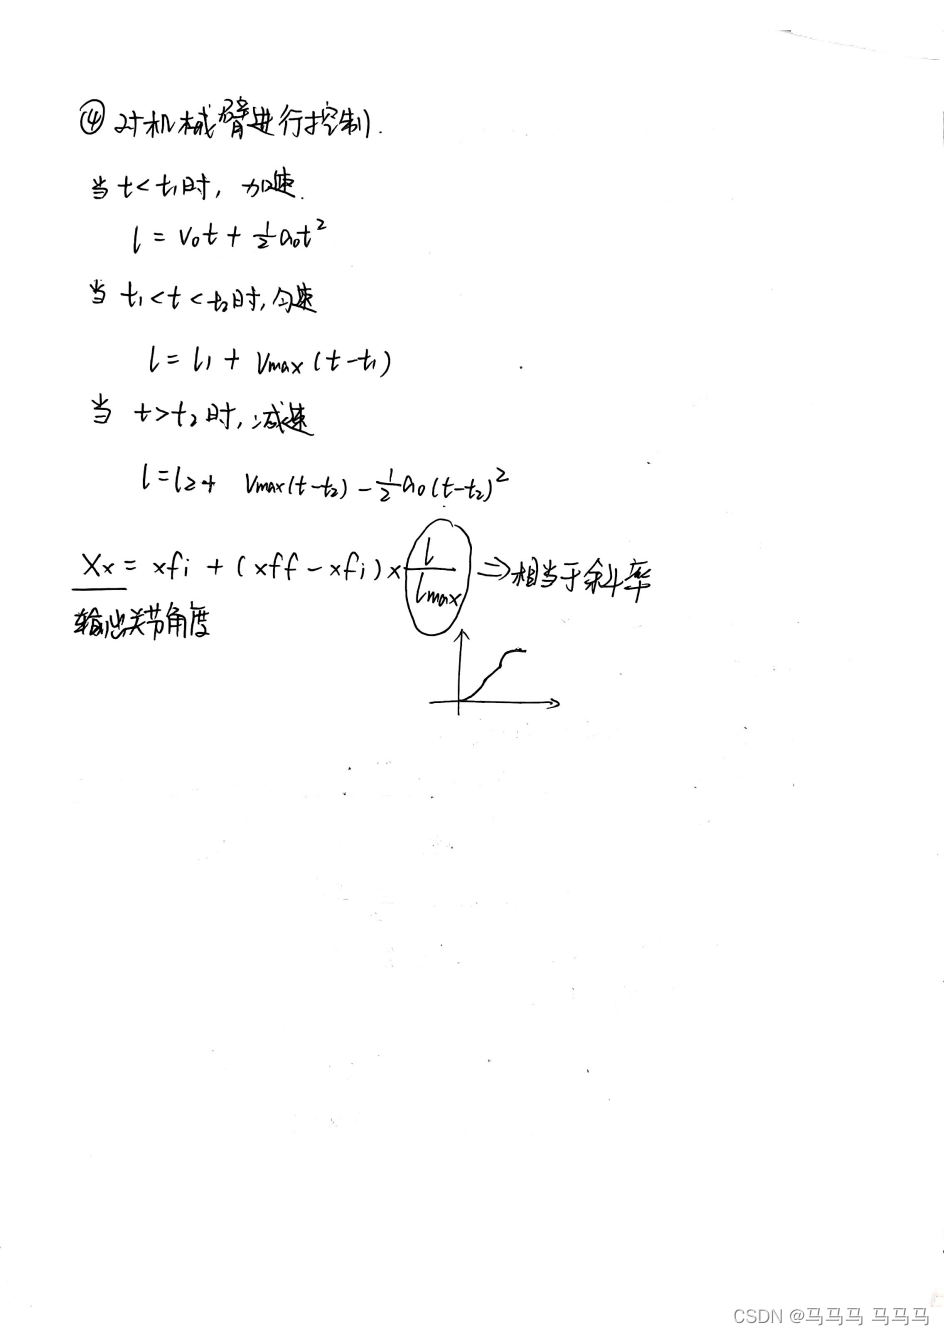 ④ 对机械臂进行控制.
当 t < t₁时, 加速.
l = v₀t + ½a₀t²
当 t₁ < t < t₂时, 匀速
l = l₁ + Vmax (t - t₁)
当 t > t₂时, 减速
l = l₂ + Vmax(t - t₂) - ½a₀(t - t₂)²
Xx = xfi + (xff - xfi) × l/lmax ⇒ 相当于斜率
输出关节角度
CSDN @马马马 马马马